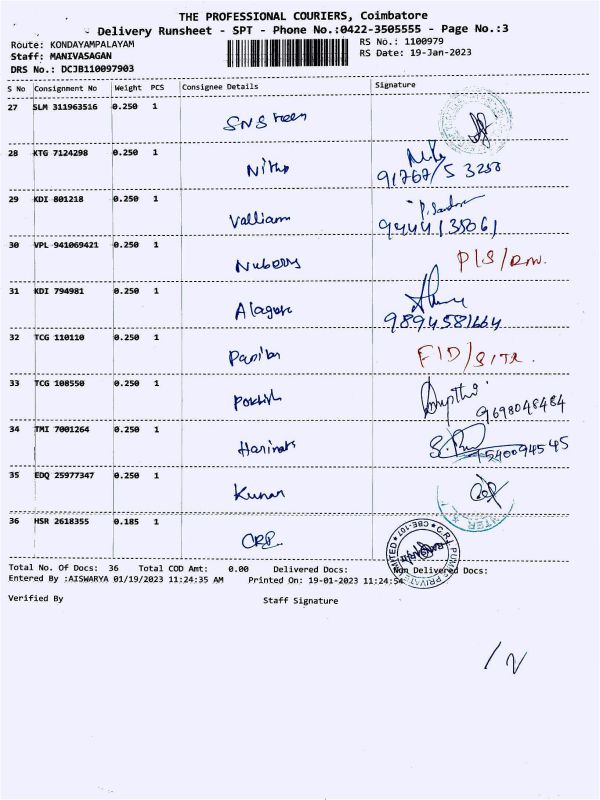 THE PROFESSIONAL COURIERS, Coimbatore
Delivery Runsheet - SPT - Phone No.:0422-3505555 - Page No.:3
Route: KONDAYAMPALAYAM RS No.: 1100979
Staff: MANIVASAGAN RS Date: 19-Jan-2023
DRS No.: DCJB110097903
S No Consignment No Weight PCS Consignee Details Signature
27 SLM 311963516 0.250 1
28 KTG 7124298 0.250 1 Nithp
29 KDI 801218 0.250 1 Valliam P. Sandar
9444135061
30 VPL 941069421 0.250 1 Nuberrs P/S/Rm.
31 KDI 794981 0.250 1 Alagar
9894581664
32 TCG 110110 0.250 1 FID/SITR.
33 TCG 108550 0.250 1
9698048484
34 TMI 7001264 0.250 1 Harinath
9540094545
35 EDQ 25977347 0.250 1 Kumar
36 HSR 2618355 0.185 1 CRP
C.R.I. PUMPS PRIVATE LIMITED CBE-107
Total No. Of Docs: 36 Total COD Amt: 0.00 Delivered Docs: Non Delivered Docs:
Entered By :AISWARYA 01/19/2023 11:24:35 AM Printed On: 19-01-2023 11:24:54
Verified By Staff Signature